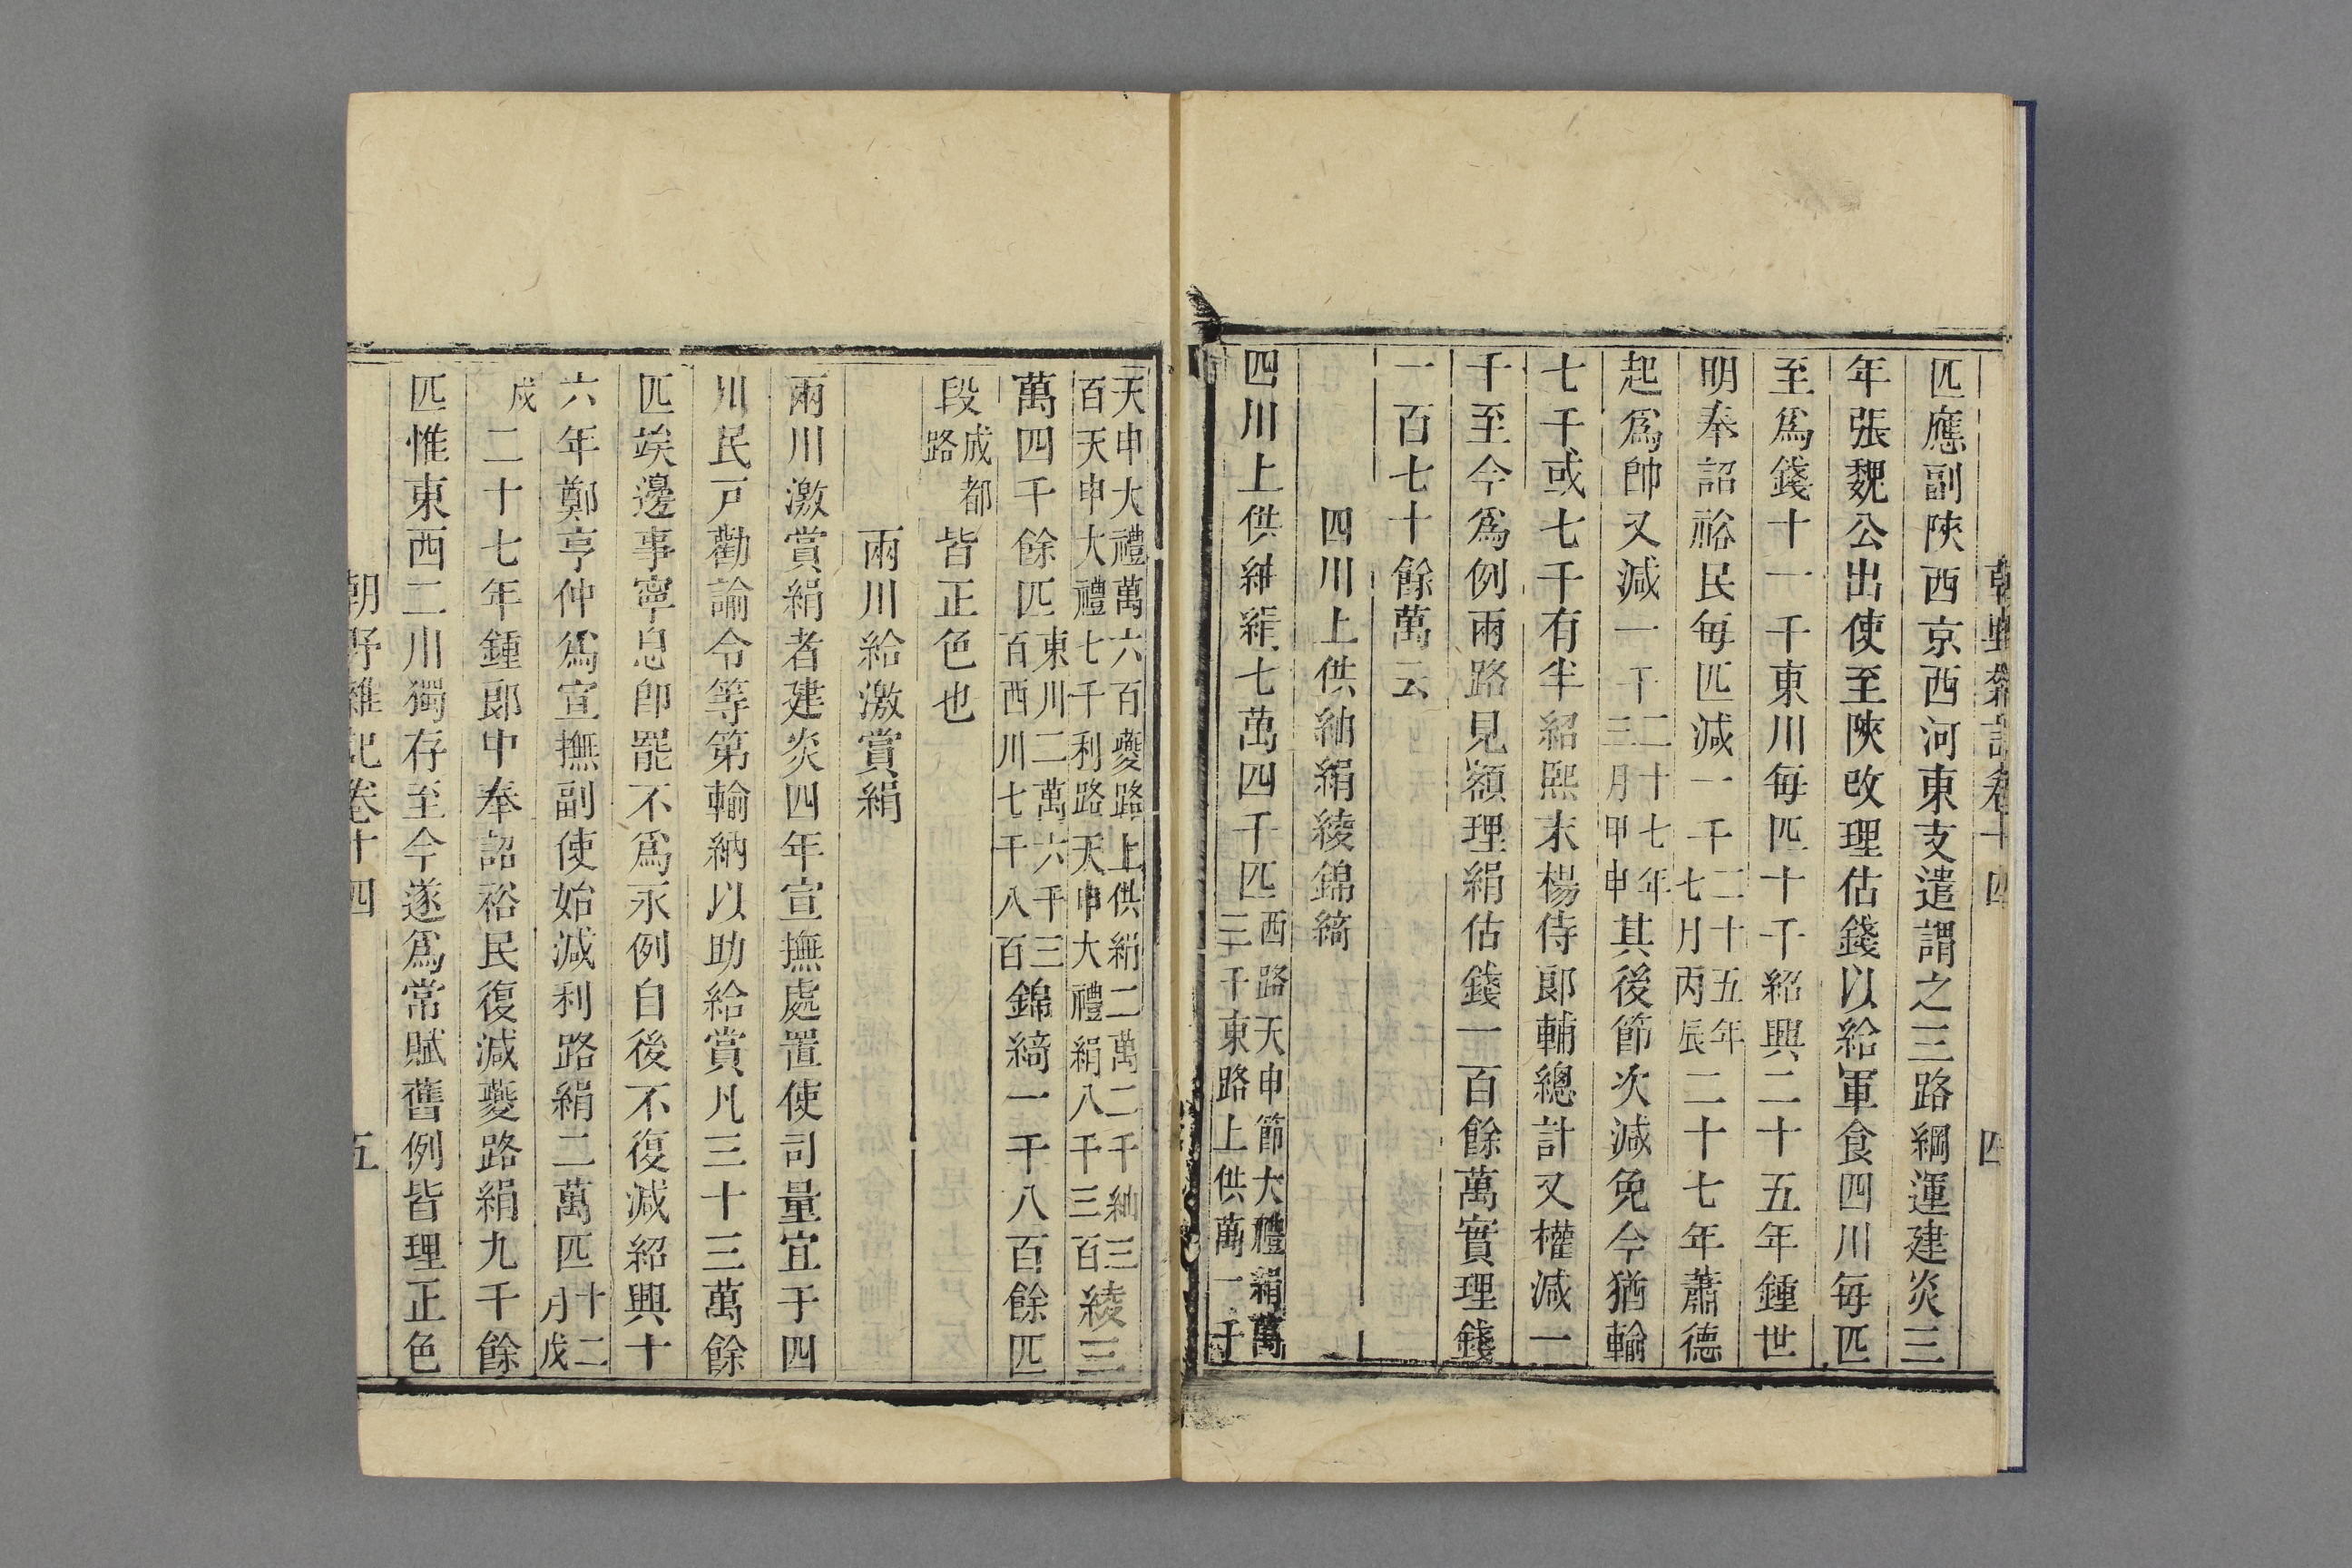 朝野雜記卷十四 四
匹應副陝西京西河東支遣謂之三路綱運建炎三
年張魏公出使至陝改理估錢以給軍食四川每匹
至爲錢十一千東川每匹十千紹興二十五年鍾世
明奉詔裕民每匹減一千二十五年七月丙辰二十七年蕭德
起爲帥又減一千二十七年三月甲申其後節次減免今猶輸
七千或七千有半紹熙末楊侍郎輔總計又權減一
千至今爲例兩路見額理絹估錢一百餘萬實理錢
一百七十餘萬云
四川上供紬絹綾錦綺
四川上供紬絹七萬四千匹西路天申節大禮絹萬三千東路上供萬一千
天申大禮萬六百夔路上供絹二萬二千紬三百天申大禮七千利路天申大禮絹八千三百綾三
萬四千餘匹東川二萬六千三百西川七千八百錦綺一千八百餘匹
段成都路皆正色也
兩川給激賞絹
兩川激賞絹者建炎四年宣撫處置使司量宜于四
川民戸勸諭令等第輸納以助給賞凡三十三萬餘
匹竢邊事寧息卽罷不爲永例自後不復減紹興十
六年鄭亨仲爲宣撫副使始減利路絹二萬匹十二月戊
戍二十七年鍾郎中奉詔裕民復減夔路絹九千餘
匹惟東西二川獨存至今遂爲常賦舊例皆理正色
朝野雜記卷十四 五